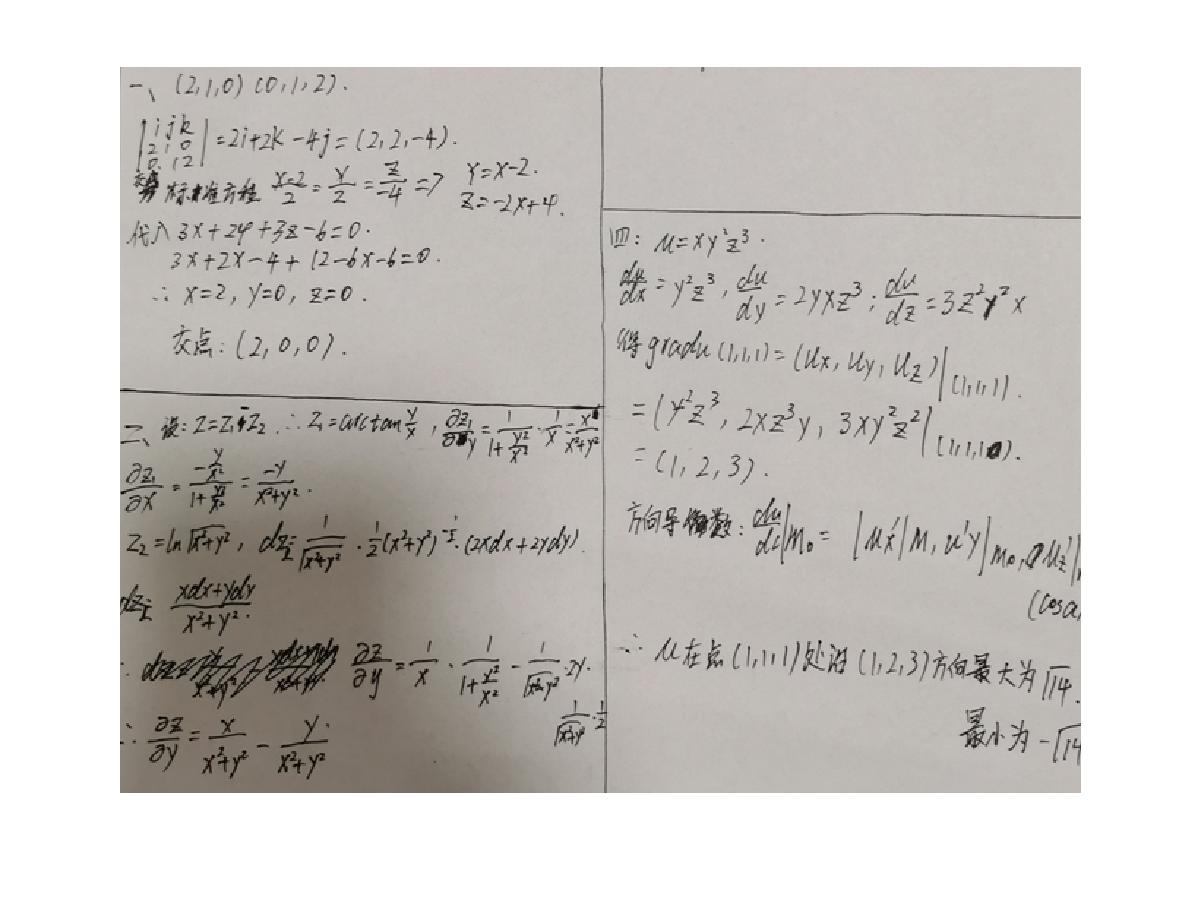 一、(2,1,0) (0,1,2).
|i j k|
|2 1 0| = 2i+2k-4j = (2,2,-4).
|0 1 2|
标准方程 (x-2)/2 = y/2 = z/-4 => y=x-2.
z=-2x+4.
代入 3x+2y+3z-6=0.
3x+2x-4+12-6x-6=0.
∴ x=2, y=0, z=0.
交点:(2,0,0).
二、设: z=z₁-z₂ ∴ z₁=arctan y/x, ∂z₁/∂y = 1/(1+y²/x²) · 1/x = x/(x²+y²)
∂z₁/∂x = (-y/x²)/(1+y²/x²) = -y/(x²+y²).
z₂=ln√(x²+y²), dz₂= 1/√(x²+y²) · 1/2(x²+y²)^(-1/2) · (2xdx+2ydy).
dz₂= (xdx+ydy)/(x²+y²).
∂z/∂y = 1/x · 1/(1+y²/x²) - 1/√(x²+y²) · 2y.
1/√(x²+y²) · 1/2
∴ ∂z/∂y = x/(x²+y²) - y/(x²+y²)
四: u=xy²z³.
du/dx = y²z³, du/dy = 2yxz³; du/dz = 3z²y²x
得 gradu(1,1,1) = (ux, uy, uz)|(1,1,1).
= (y²z³, 2xz³y, 3xy²z²|(1,1,1).
= (1,2,3).
方向导数: du/dl|m₀ = |u'x|M, u'y|m₀, u'z|
(cosα,
∴ u在点(1,1,1)处沿(1,2,3)方向最大为√14.
最小为-√14